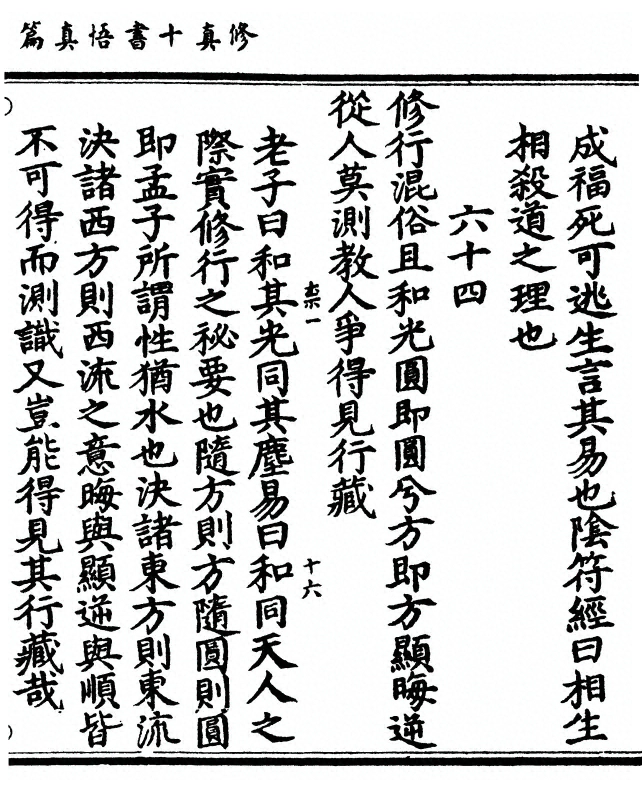 修真十書悟真篇
成福死可逃生言其易也陰符經曰相生
相殺道之理也
六十四
修行混俗且和光圓即圓兮方即方顯晦逆
從人莫測教人爭得見行藏
柰一
十六
老子曰和其光同其塵易曰和同天人之
際實修行之祕要也隨方則方隨圓則圓
即孟子所謂性猶水也決諸東方則東流
決諸西方則西流之意晦與顯逆與順皆
不可得而測識又豈能得見其行藏哉